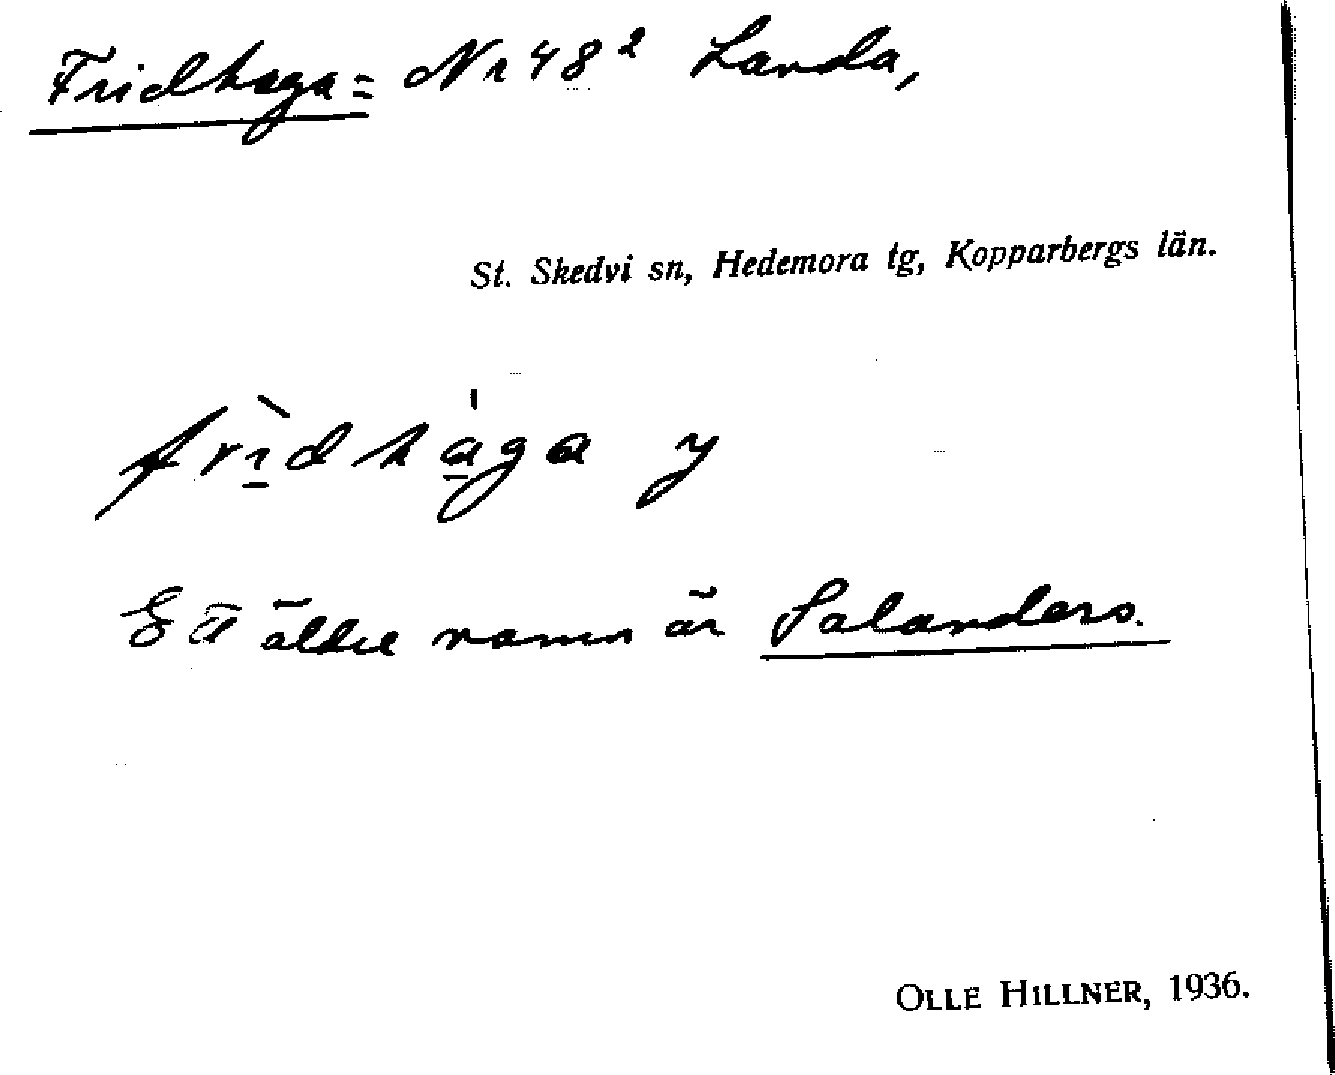 Fridhaga = Nr 48² Landa,
St. Skedvi sn, Hedemora tg, Kopparbergs län.
frı̠̀dha̠̍ga y
Ett äldre namn är Salanders.
OLLE HILLNER, 1936.